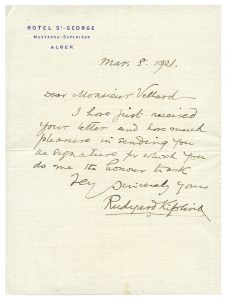 HOTEL St-GEORGE
MUSTAPHA-SUPÉRIEUR
ALGER
Mar. 8. 1921.
Dear Monsieur
I have just received
your letter and have much
pleasure in sending you
the signature for which you
do me the honour to ask
Very Sincerely yours
Rudyard Kipling